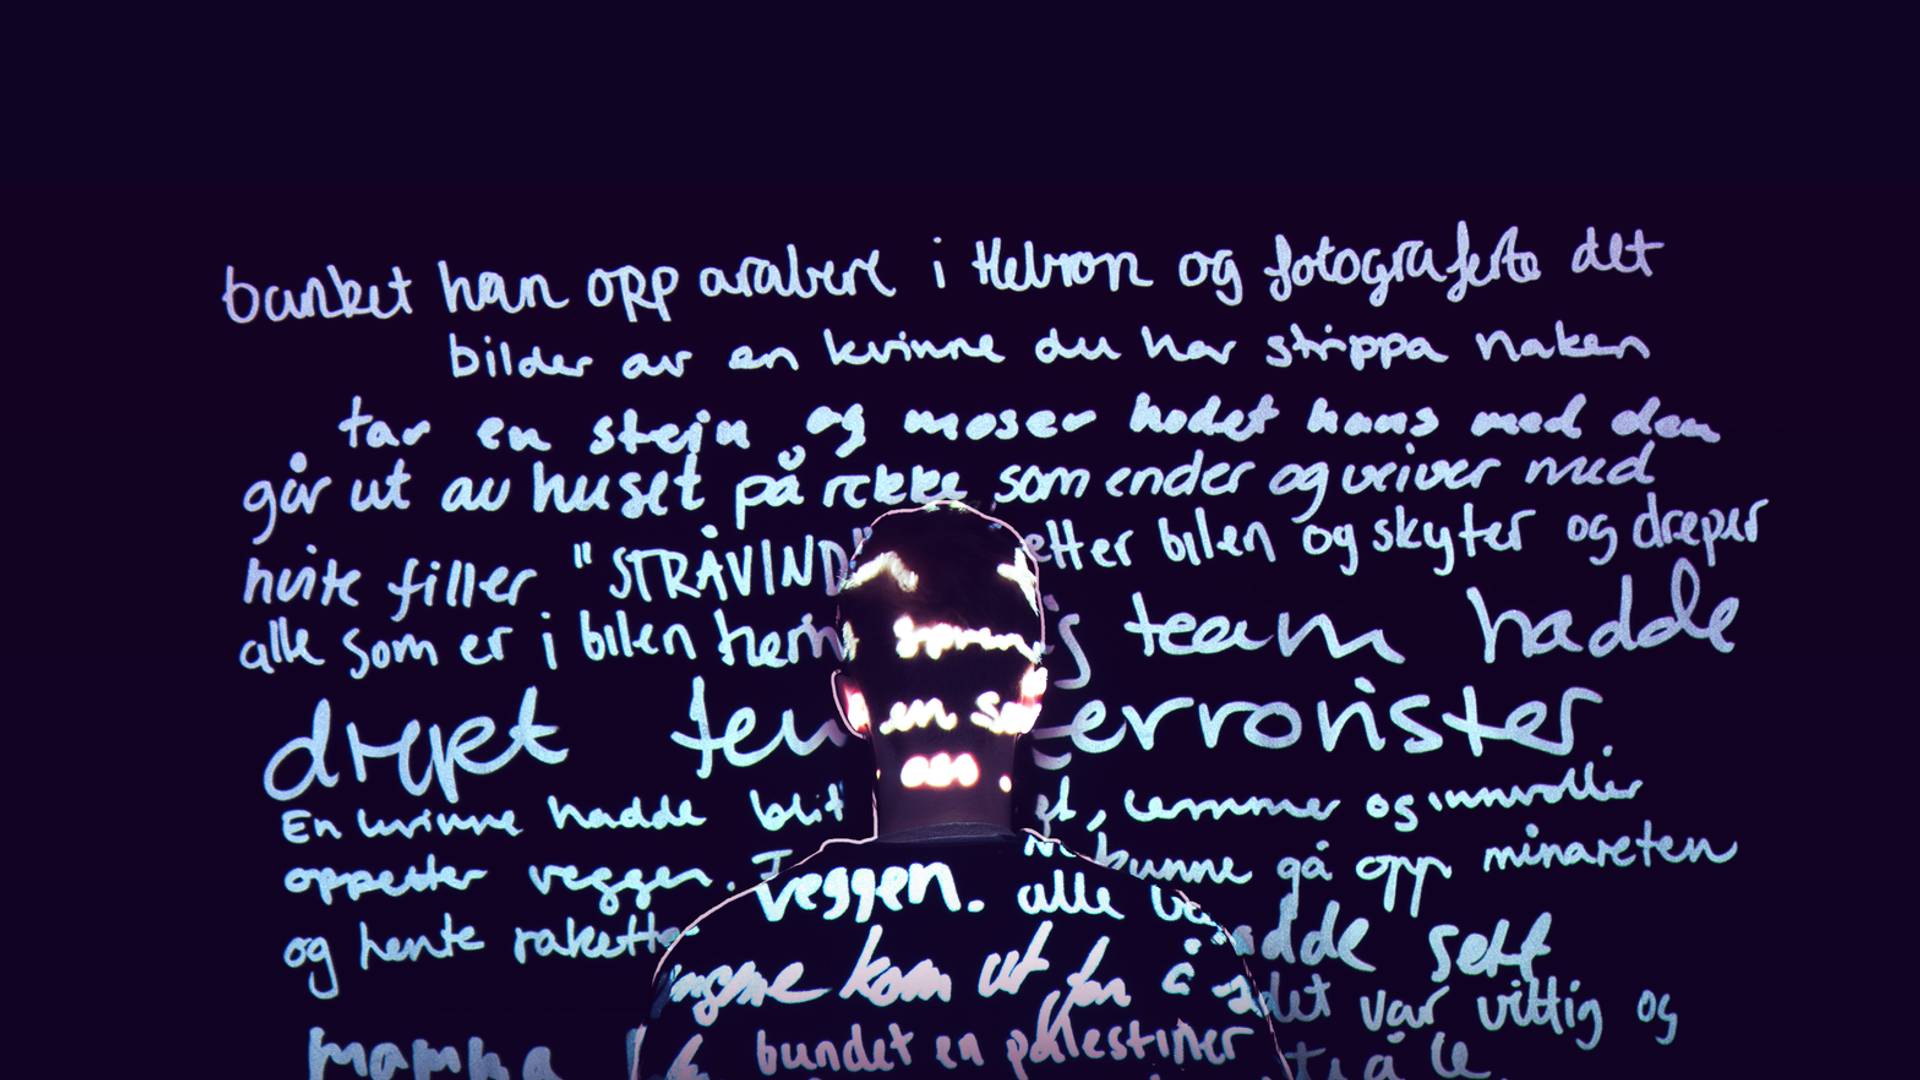 banket han opp arabere i Hebron og fotograferte det
bilder av en kvinne du har strippa naken
tar en stein og moser hodet hans med den
går ut av huset på rekke som ender og veiver med
hvite filler "STRÅVIND" etter bilen og skyter og dreper
alle som er i bilen team hadde
drept terrorister.
En kvinne hadde blitt lemmer og innvoller
oppetter veggen. kunne gå opp minareten
veggen. alle
og hente raketter hadde sett
kom ut for å det var vittig og
mamma bundet en palestiner